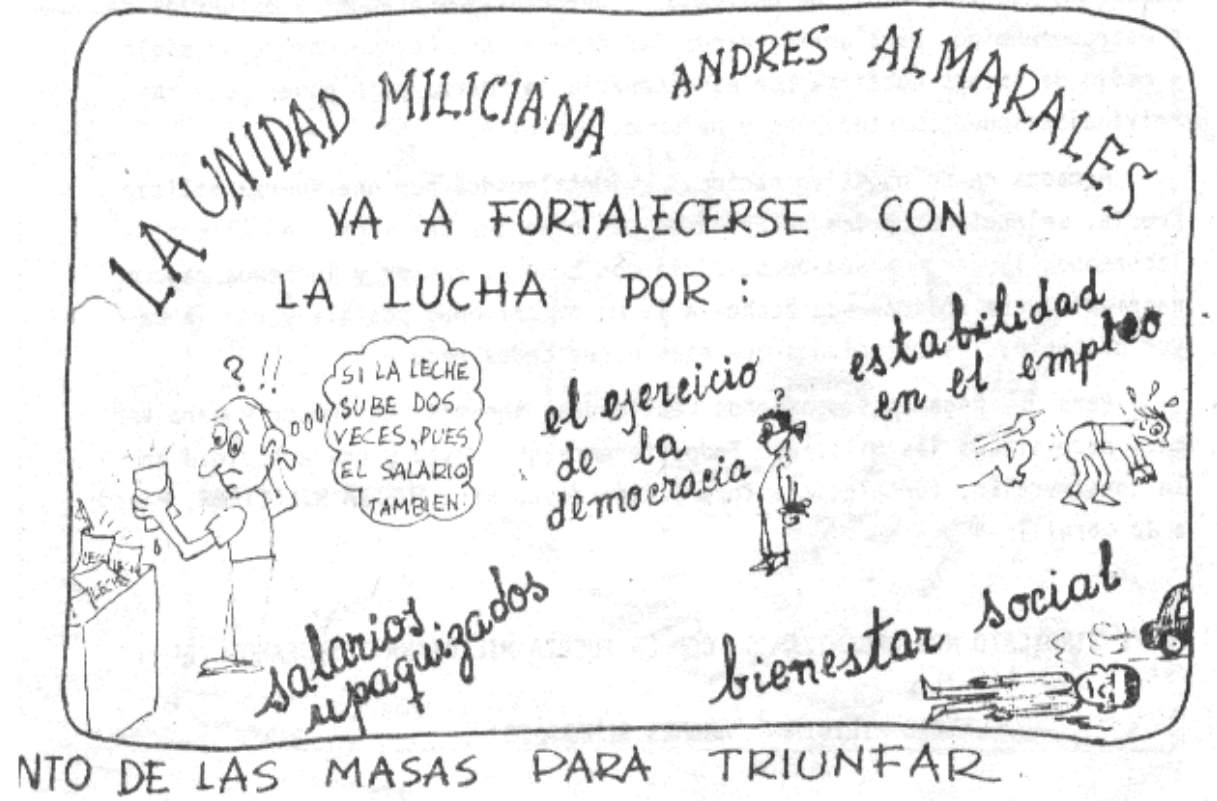 LA UNIDAD MILICIANA ANDRES ALMARALES
VA A FORTALECERSE CON
LA LUCHA POR:
? !!
SI LA LECHE
SUBE DOS
VECES, PUES
EL SALARIO
TAMBIEN.
el ejercicio
de la
democracia
?
estabilidad
en el empleo
LECHE
salarios
upaquizados
bienestar social
NTO DE LAS MASAS PARA TRIUNFAR.